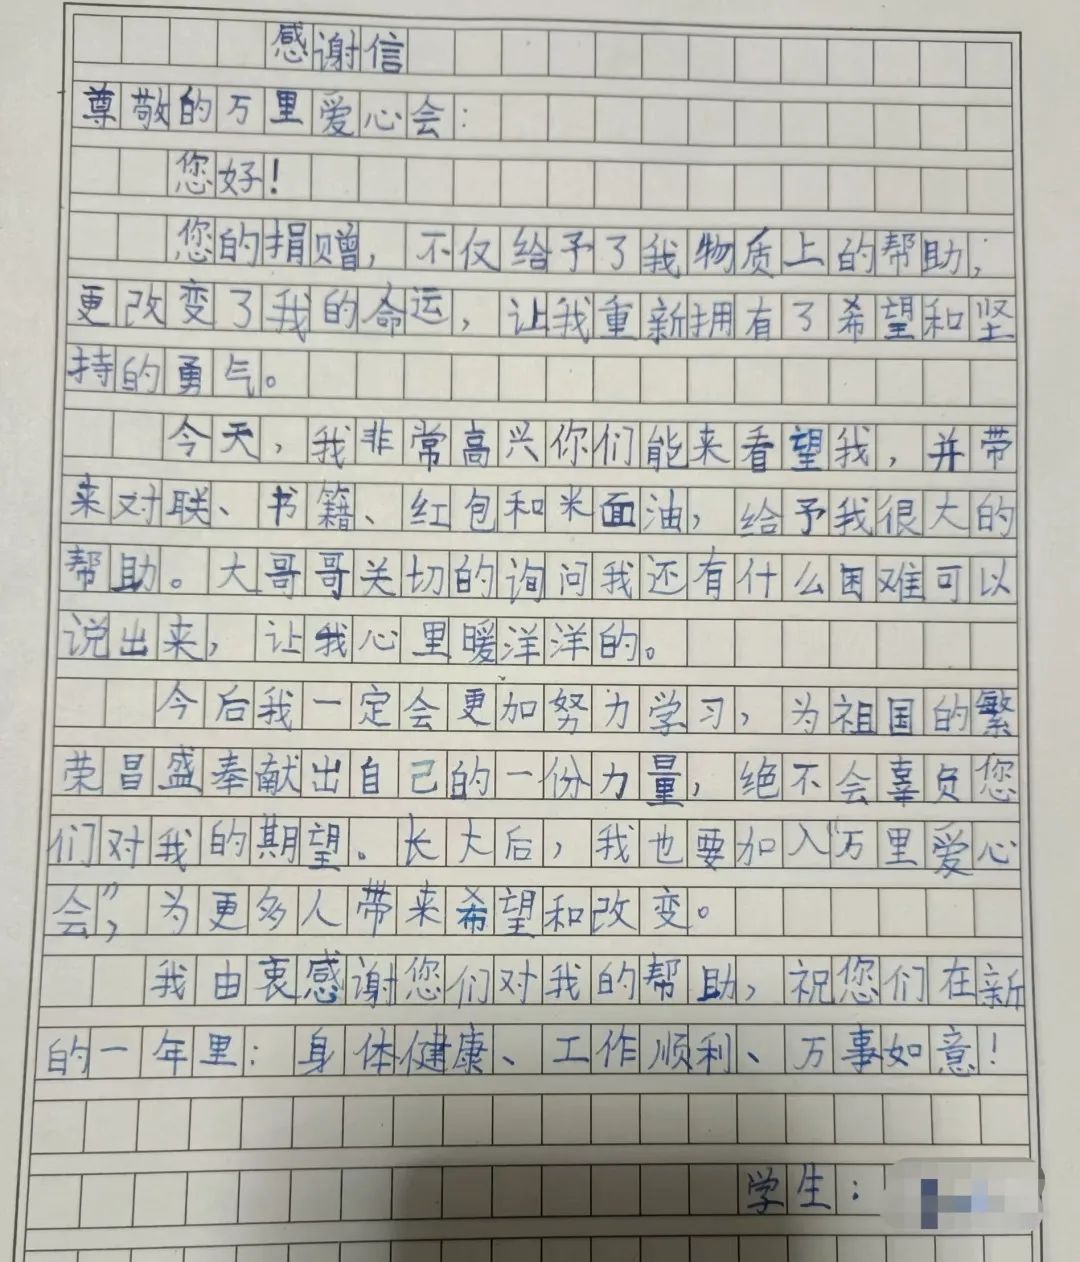 感谢信
尊敬的万里爱心会：
您好！
您的捐赠，不仅给予了我物质上的帮助，
更改变了我的命运，让我重新拥有了希望和坚
持的勇气。
今天，我非常高兴你们能来看望我，并带
来对联、书籍、红包和米面油，给予我很大的
帮助。大哥哥关切的询问我还有什么困难可以
说出来，让我心里暖洋洋的。
今后我一定会更加努力学习，为祖国的繁
荣昌盛奉献出自己的一份力量，绝不会辜负您
们对我的期望。长大后，我也要加入“万里爱心
会”，为更多人带来希望和改变。
我由衷感谢您们对我的帮助，祝您们在新
的一年里：身体健康、工作顺利、万事如意！
学生：